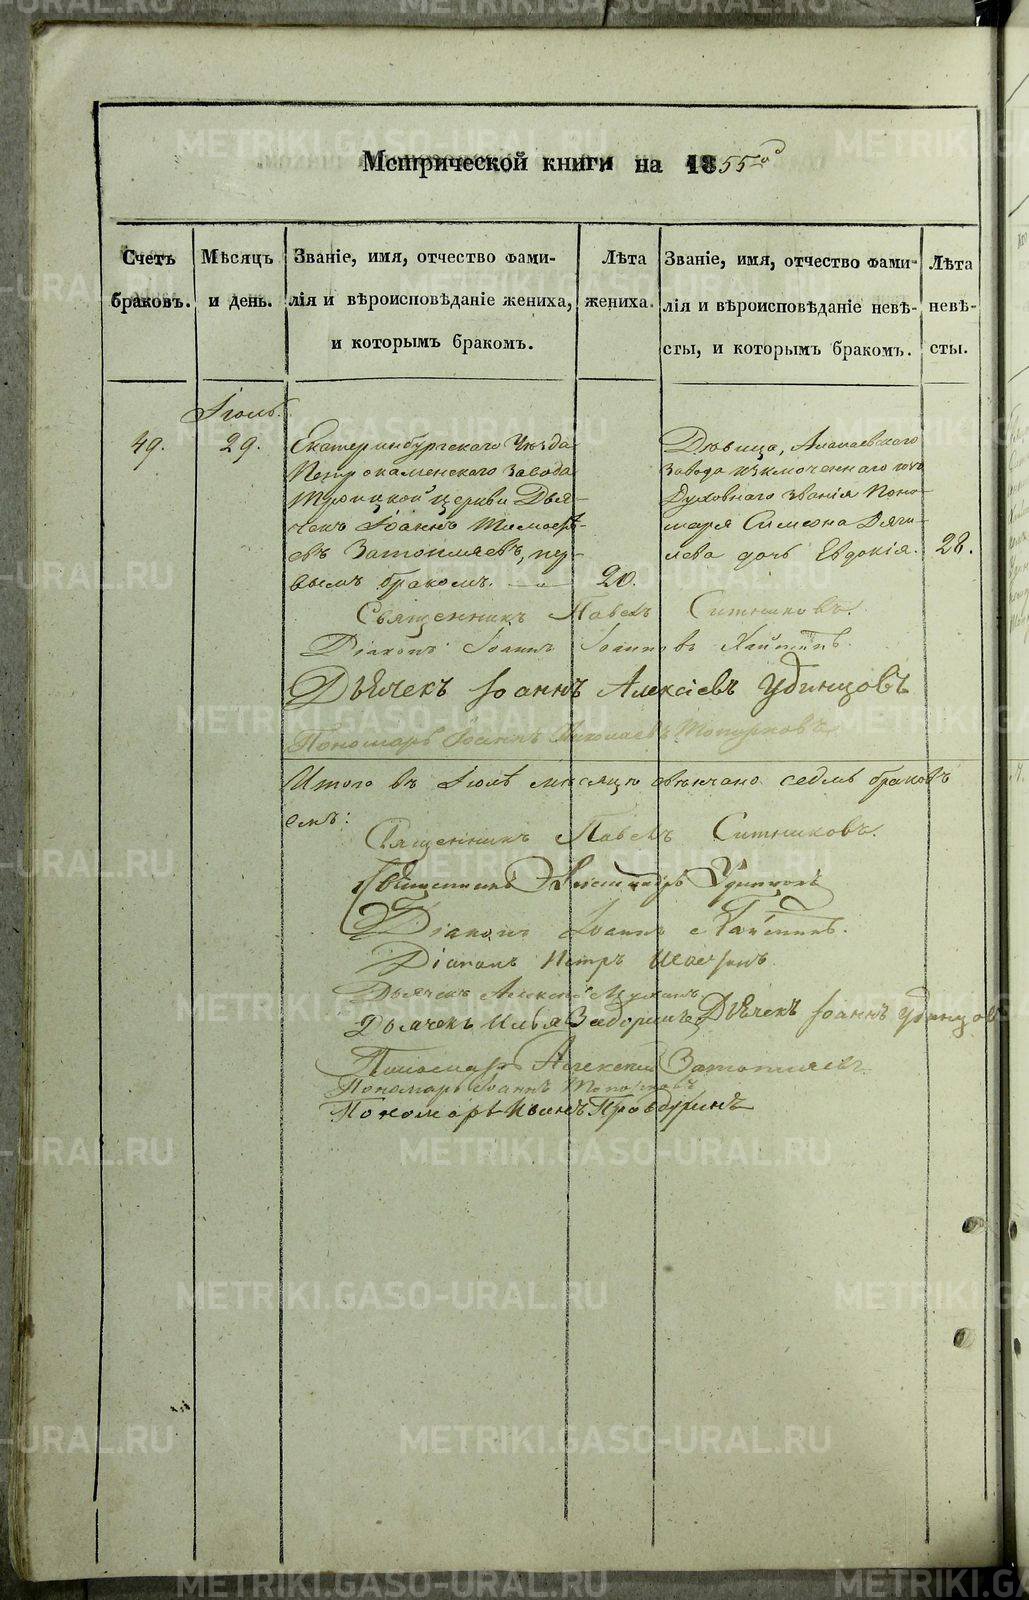 Метрической книги на 1855го
Счетъ браковъ.
Мѣсяцъ и день.
Званіе, имя, отчество фами-
лія и вѣроисповѣданіе жениха,
и которымъ бракомъ.
Лѣта жениха.
Званіе, имя, отчество фами-
лія и вѣроисповѣданіе невѣ-
сты, и которымъ бракомъ.
Лѣта невѣ-
сты.
Іюль.
49.
29.
Екатеринбургского Уѣзда
Петрокаменского Завода
Троицкой церкви Дья-
чекъ Іоаннъ Тимофѣ-
евъ Затопляевъ, пер-
вымъ бракомъ.
20.
Дѣвица, Алапаевского
завода изключенного изъ
Духовнаго званія Поно-
маря Симеона Дяги-
лева дочь Евдокія.
28.
Священникъ Павелъ Ситниковъ.
Діаконъ Іоаннъ Іоанновъ
Дьячекъ Іоаннъ Алексіевъ Удинцовъ
Пономарь Іоаннъ Николаевъ Топорковъ
Итого въ Іюлѣ мѣсяцѣ овѣнчано седмь браковъ
Священникъ Павелъ Ситниковъ.
Священникъ Александръ Удинцовъ
Діаконъ Іоаннъ
Діаконъ Петръ
Дьячекъ Алексій
Дьячекъ Илья Задоринъ Дьячекъ Іоаннъ Удинцов
Пономарь Алексей Затопляевъ
Пономарь Іоаннъ Топорковъ
Пономарь Иванъ
METRIKI.GASO-URAL.RU